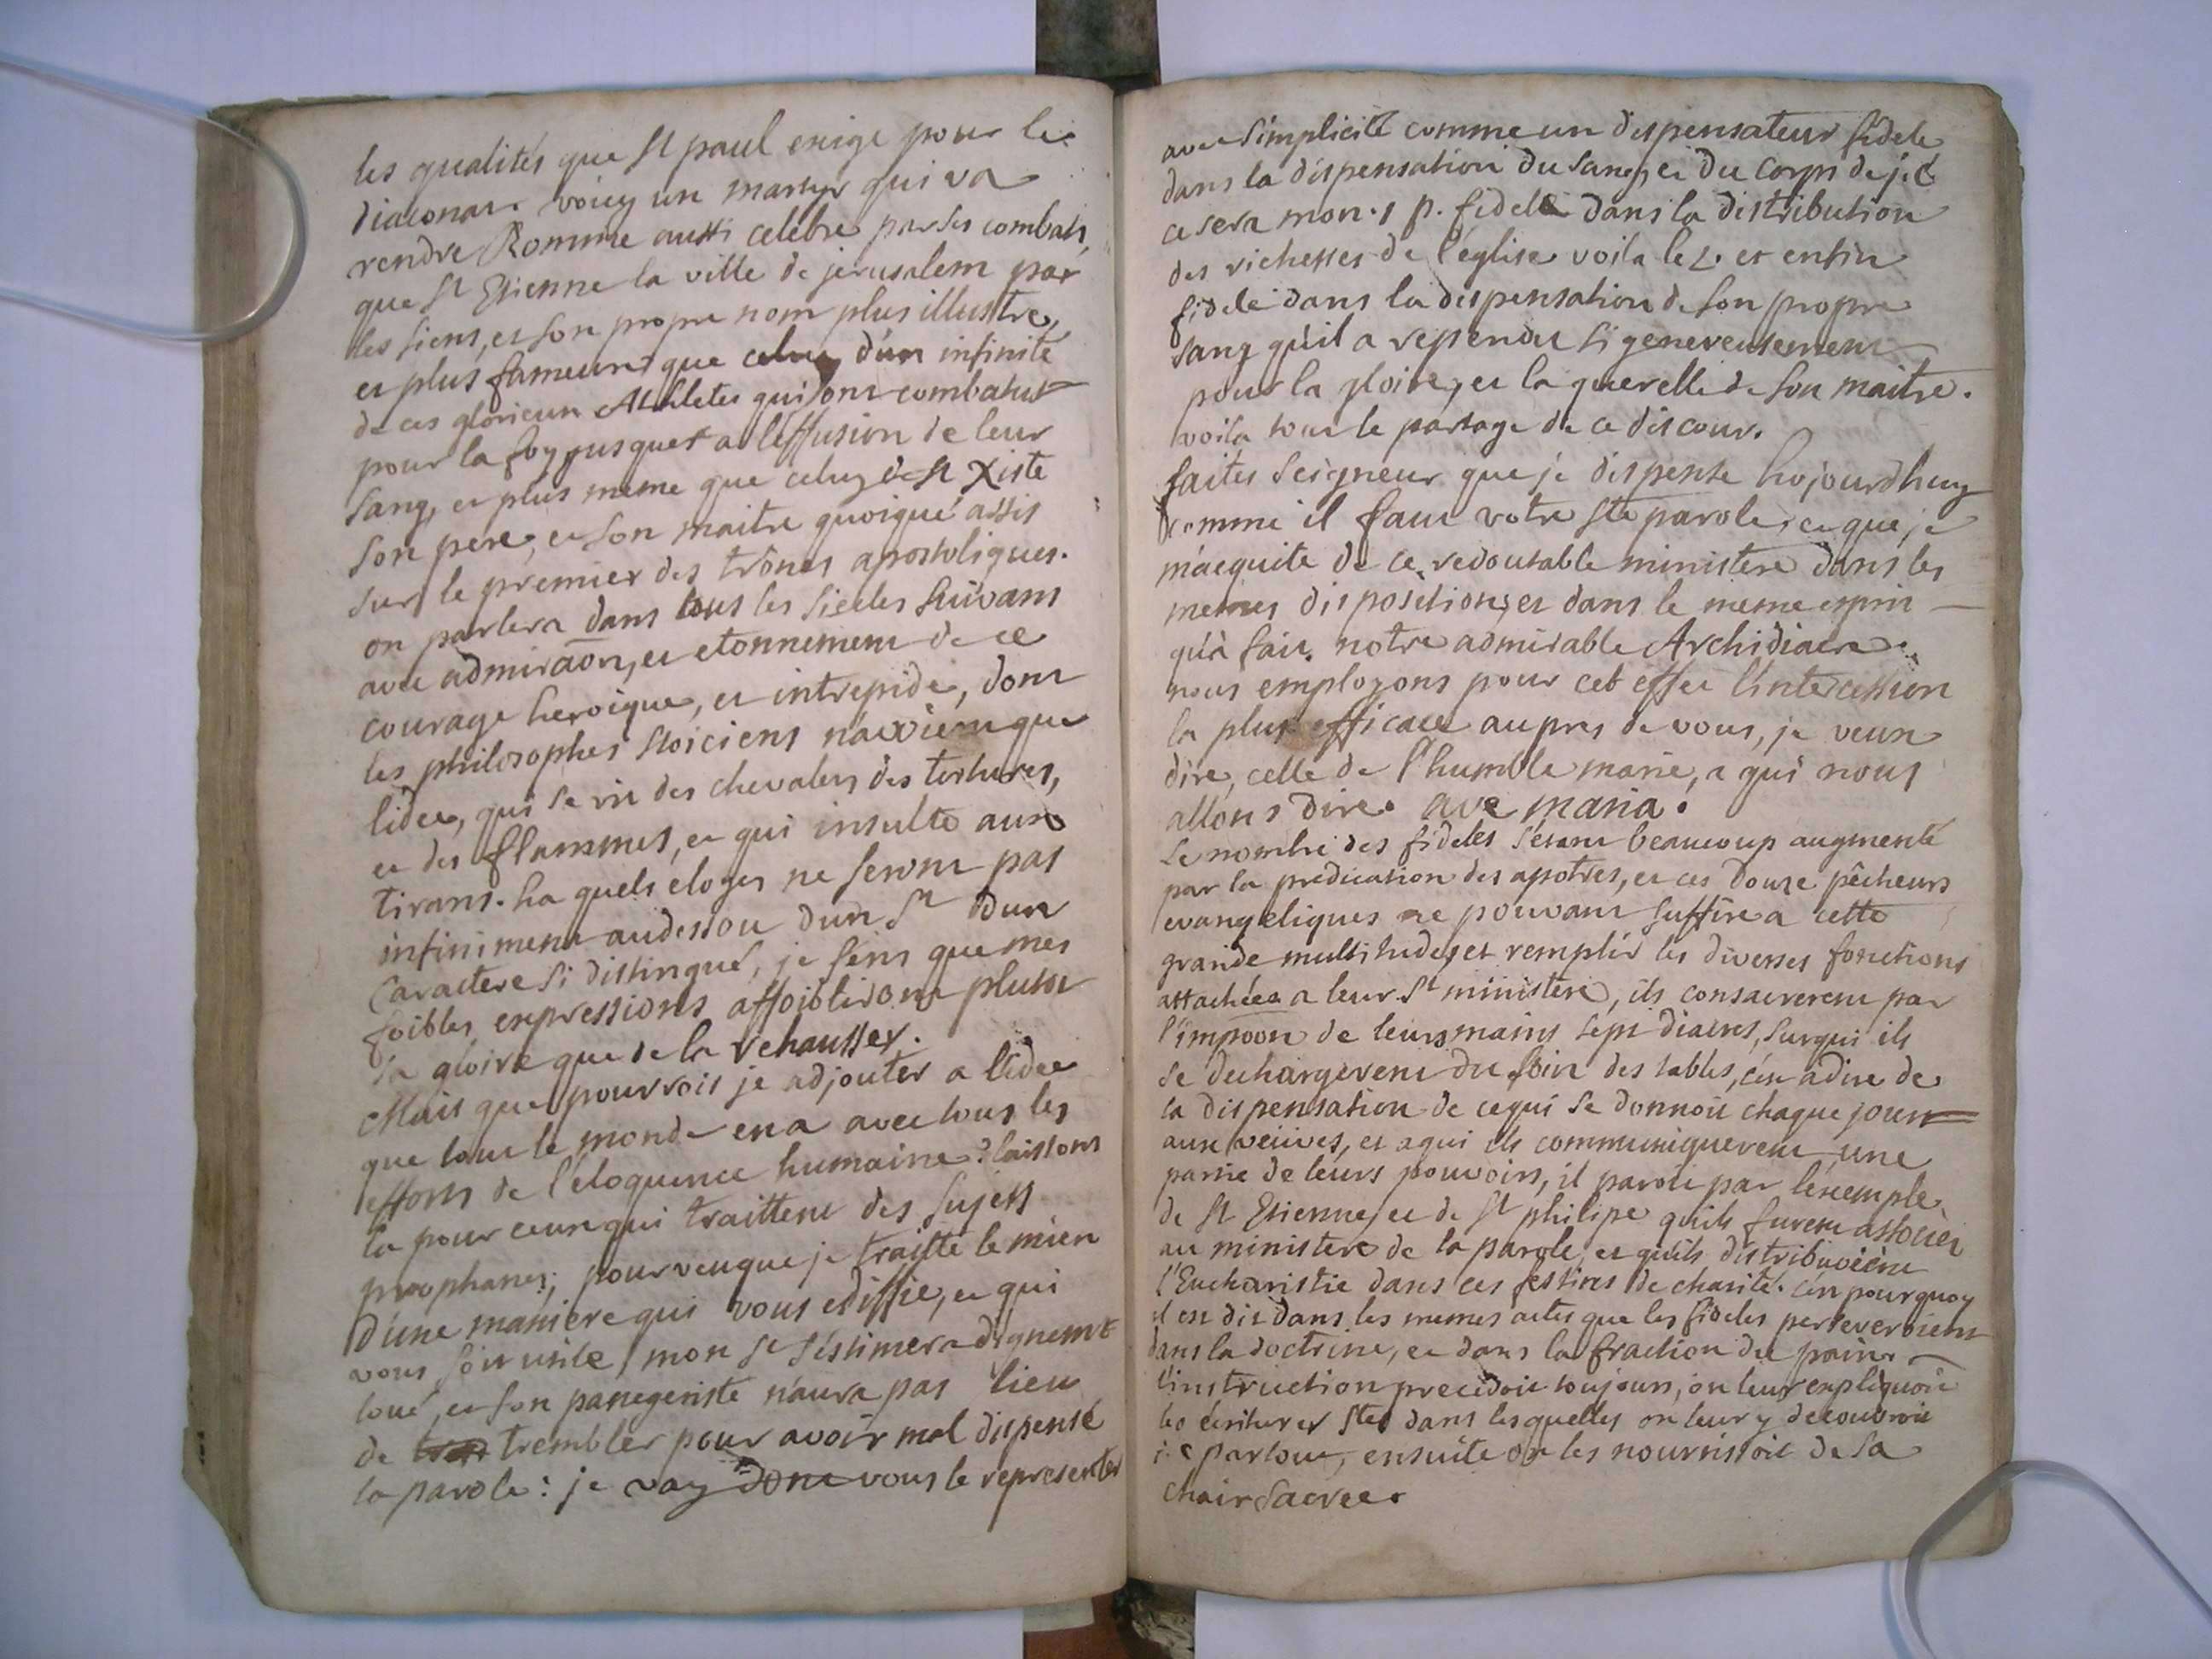 les qualités que St paul exige pour le
diaconat. voicy un martyr qui va
rendre Romme aussi celebre par ses combats,
que St Etienne la ville de jerusalem par
les siens, et son propre nom plus illustre,
et plus fameux que celuy d'un infinité
de ces glorieux Athletes qui ont combatut
pour la foy jusques a l'effusion de leur
sang, et plus meme que celuy de St Xiste
son pere, et son maitre quoique assis
sur le premier des trônes apostoliques.
on parlera dans tous les siecles suivans
avec admiraon, et etonnement de ce
courage heroique, et intrepide, dont
les philosophes stoiciens n'avoient que
lidee, qui se rit des chevalets des tortures,
et des flammes, et qui insulte aux
tirans. ha quels eloges ne seront pas
infiniment audessou d'un St d'un
Caractere si distingué, je sens que mes
foibles expressions affoibliront plutot
sa gloire que de la rehausser.
Mais que pourrois je adjouter a l'idee
que tout le monde en a avec tous les
efforts de l'éloquence humaine? laissons
la pour ceux qui traittent des sujets
prophanes; pourveu que je traitte le mien
d'une maniere qui vous ediffie, et qui
vous soit utile mon St s'éstimera dignemt
loué, et son panegeriste n'aura pas lieu
de trembler pour avoir mal dispensé
la parole: je vay donc vous le representer
avec simplicité comme un dispensateur fidele
dans la dispensation du sang, et du corps de j.C
ce sera mon 1 p. fidele dans la distribution
des richesses de l'église voila le 2. et enfin
fidele dans la dispensation de son propre
sang qu'il a rependu si genereusement
pour la gloire, et la querelle de son maitre.
voila tout le partage de ce discour.
faites Seigneur que je dispense hojourdhuy
comme il faut votre Ste parole, et que je
m'aequite de ce redoutable ministere dans les
memes dispositions, et dans le meme esprit
qu'à fait notre admirable Archidiacre.
nous employons pour cet effet l'intercession
la plus efficace aupres de vous, je veux
dire, celle de l'humble marie, a qui nous
allons dire. ave maria.
Le nombre des fideles s'étant beaucoup augmenté
par la predication des apotres, et ces douze pêcheurs
evangeliques ne pouvant suffire a cette
grande multitude, et remplir les diverses fonctions
attachées a leur St ministere, ils consacrerent par
l'impoon de leurs mains sept diacres, sur qui ils
se dechargerent du soin des tables, c'est à dire de
la dispensation de ce qui se donnoit chaque jour
aux veuves, et a qui ils communiquerent une
partie de leurs pouvoirs, il paroit par l'éxemple
de St Etienne, et de St philipe qu'ils furent associés
au ministere de la parole, et qu'ils distribuoient
l'Eucharistie dans ces festins de charité. c'est pourquoy
il est dit dans les memes actes que les fideles perseveroient
dans la doctrine, et dans la fraction du pain.
l'instruction precedoit toujours, on leur expliquoit
les écritures Stes dans lesquelles on leur y decouvroit
j.c partout, ensuite on les nourrissoit de sa
chair sacree.